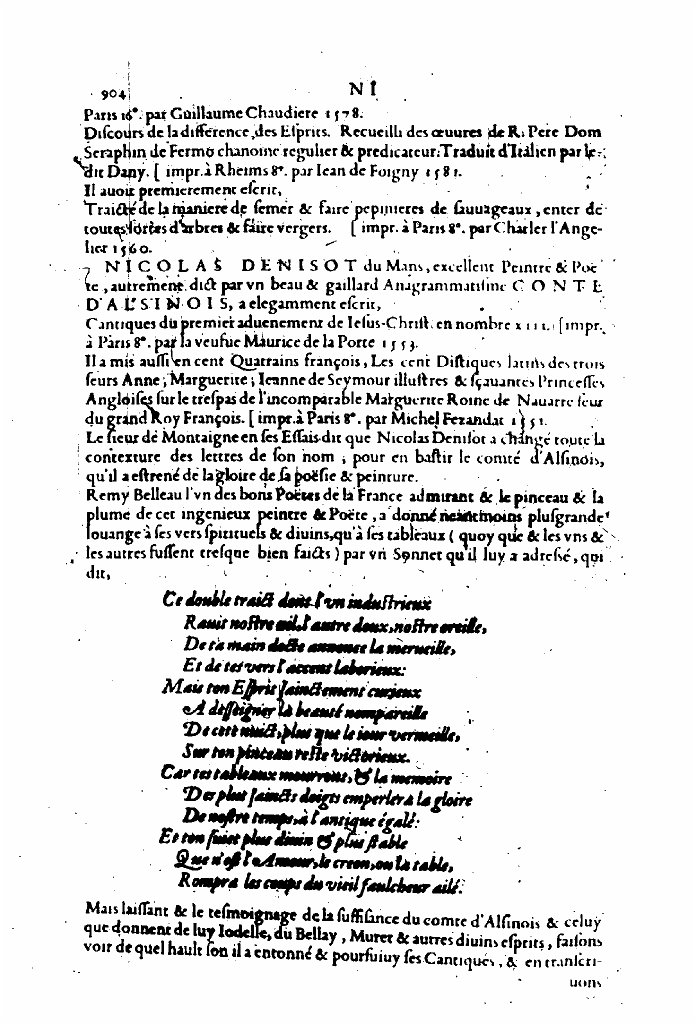 904 NI
Paris 16°. par Guillaume Chaudiere 1578.
Discours de la difference, des Esprits. Recueilli des œuures de R. Pere Dom
Seraphin de Fermo chanoine regulier & predicateur: Traduit d'Italien par le-
dit Dany. [ impr. à Rheims 8°. par Iean de Foigny 1581.
Il auoit premierement escrit,
Traicté de la maniere de semer & faire pepinieres de sauuageaux, enter de
toutes sortes d'arbres & faire vergers. [ impr. à Paris 8°. par Charler l'Ange-
lier 1560.
NICOLAS DENISOT du Mans, excellent Peintre & Poë
te, autrement dict par vn beau & gaillard Anagrammatisme CONTE
D'ALSINOIS, a elegamment escrit,
Cantiques du premier aduenement de Iesus-Christ. en nombre XIII. [impr.
à Paris 8°. par la veufue Maurice de la Porte 1553.
Il a mis aussi en cent Quatrains françois, Les cent Distiques latins des trois
seurs Anne, Marguerite, Ieanne de Seymour illustres & sçauantes Princesses
Angloises sur le trespas de l'incomparable Marguerite Roine de Nauarre seur
du grand Roy François. [ impr. à Paris 8°. par Michel Fezandat 1551.
Le sieur de Montaigne en ses Essais dit que Nicolas Denisot a changé toute la
contexture des lettres de son nom, pour en bastir le comté d'Alsinois,
qu'il a estrené de la gloire de sa poësie & peinture.
Remy Belleau l'vn des bons Poëtes de la France admirant & le pinceau & la
plume de cet ingenieux peintre & Poëte, a donné neantmoins plusgrande
louange à ses vers spirituels & diuins, qu'à ses tableaux ( quoy que & les vns &
les autres fussent tresque bien faicts ) par vn Sonnet qu'il luy a adressé, qui
dit,
Ce double traict dont l'vn industrieux
Rauit nostre œil, l'autre doux, nostre oreille,
De ta main docte annonce la merueille,
Et de tes vers l'accent laborieux:
Mais ton Esprit sainctement curieux
A desseigner la beauté nompareille
De cete nuict, plus que le iour vermeille,
Sur ton pinceau reste victorieux.
Car tes tableaux mourront, & la memoire
Des plus saincts doigts emperler a la gloire
De nostre temps, à l'antique égalé:
Et ton suiet plus diuin & plus stable
Que n'est l'Amour, le creon, ou la table,
Rompra les coups du vieil faulcheur ailé.
Mais laissant & le tesmoignage de la suffisance du comte d'Alsinois & celuy
que donnent de luy Iodelle, du Bellay, Muret & autres diuins esprits, faisons
voir de quel hault son il a entonné & poursuiuy ses Cantiques, & en transcri-
uons